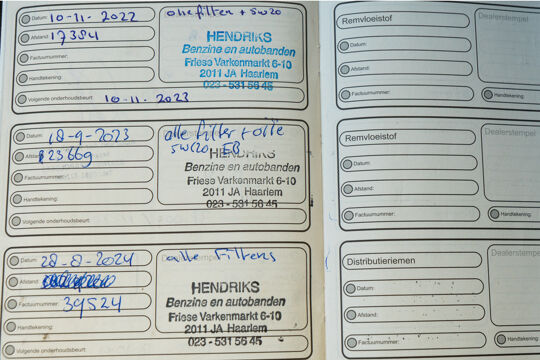 Datum: 10-11-2022
oliefilter + 5w20
Afstand: 17384
HENDRIKS
Benzine en autobanden
Friese Varkenmarkt 6-10
2011 JA Haarlem
023 - 531 56 45
Factuurnummer:
Handtekening:
Volgende onderhoudsbeurt: 10-11-2023
Datum: 18-9-2023
alle filter + olie
5w20
Afstand: 23669
HENDRIKS
Benzine en autobanden
Friese Varkenmarkt 6-10
2011 JA Haarlem
023 - 531 56 45
Factuurnummer:
Handtekening:
Volgende onderhoudsbeurt:
Datum: 28-8-2024
alle Filters
Afstand:
Factuurnummer: 39524
HENDRIKS
Benzine en autobanden
Friese Varkenmarkt 6-10
2011 JA Haarlem
023 - 531 56 45
Handtekening:
Volgende onderhoudsbeurt:
Remvloeistof
Dealerstempel
Datum:
Afstand:
Factuurnummer:
Handtekening:
Remvloeistof
Dealerstempel
Datum:
Afstand:
Factuurnummer:
Handtekening:
Distributieriemen
Dealerstempel
Datum:
Afstand:
Factuurnummer:
Handtekening: